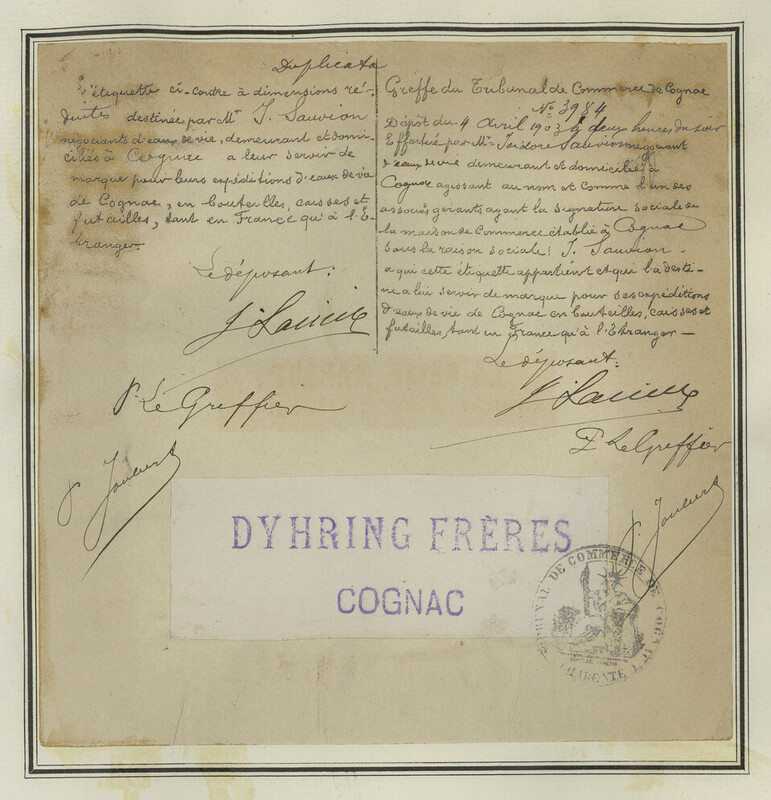 Duplicata
L'étiquette ci-contre à dimensions ré-
duites destinée par Mr J. Sauvion
négociants d'eaux de vie, demeurant et domi-
ciliés à Cognac a leur servir de
marque pour leurs expéditions d'eaux de vie
de Cognac, en bouteilles, caisses et
futailles, tant en France qu'à l'É-
tranger.
Le déposant:
J. Sauvion
P. Le Greffier
Greffe du Tribunal de Commerce de Cognac
No 3984
Dépôt du 4 Avril 1903 à deux heures du soir
Effectué par Mr Isidore Sauvion négociant
d'eaux de vie demeurant et domicilié à
Cognac agissant au nom et comme l'un des
associés gérants, ayant la signature sociale de
la maison de Commerce établie à Cognac
sous la raison sociale: J. Sauvion -
a qui cette étiquette appartient et qui l'a desti-
née a lui servir de marque pour ses expéditions
d'eaux de vie de Cognac en bouteilles, caisses et
futailles, tant en France qu'à l'Etranger —
Le déposant:
J. Sauvion
P. Le Greffier
DYHRING FRÈRES
COGNAC
TRIBUNAL DE COMMERCE DE COGNAC
CHARENTE